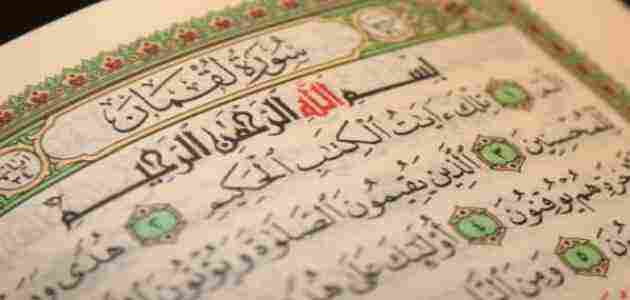 سُورَةُ لُقْمَان
بِسْمِ اللَّهِ الرَّحْمَٰنِ الرَّحِيمِ
الٓمٓ ١ تِلْكَ ءَايَٰتُ ٱلْكِتَٰبِ ٱلْحَكِيمِ ٢ هُدًى
لِّلْمُحْسِنِينَ ٣ ٱلَّذِينَ يُقِيمُونَ ٱلصَّلَوٰةَ وَيُؤْتُونَ
هُمْ يُوقِنُونَ ٤ أُو۟لَٰٓئِكَ عَلَىٰ هُدًى
٥ وَمِنَ